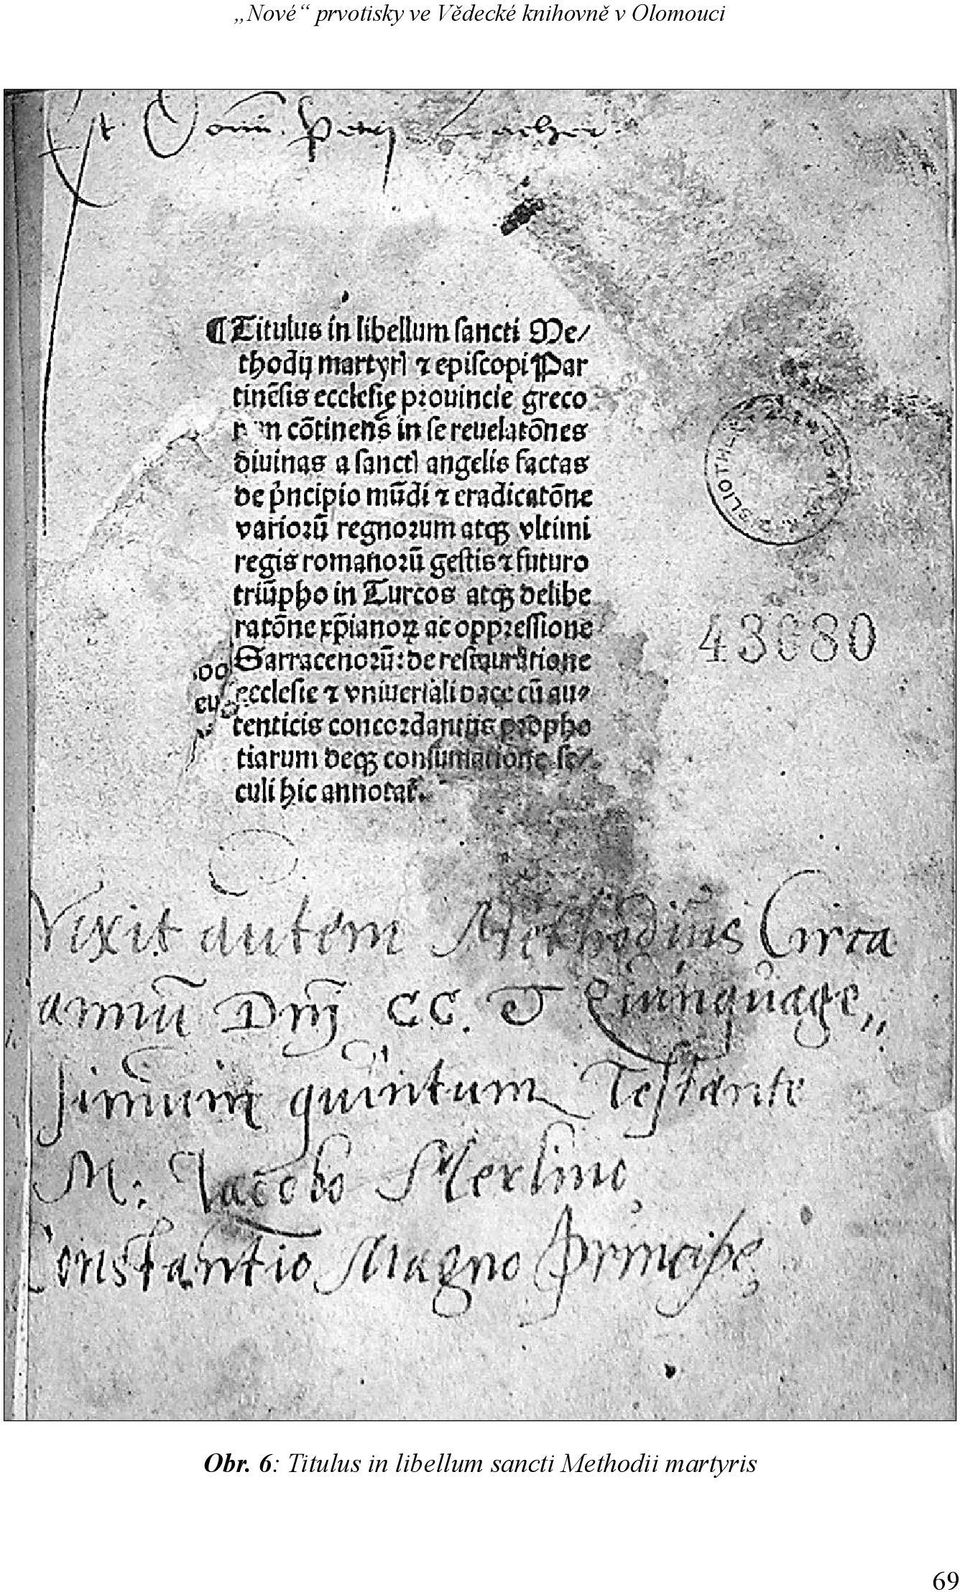 „Nové“ prvotisky ve Vědecké knihovně v Olomouci
¶Titulus in libellum ſancti Me/
thodij martyrꝭ ⁊ epiſcopi Par
tinēſis eccleſię prouincie greco
cōtinens in ſe reuelatōnes
diuinas a ſanctꝭ angelis factas
de pͥncipio mūdi ⁊ eradicatōne
variorū regnorum atqꝫ vltimi
regis romanorū geſtis ⁊ futuro
triūpho in Turcos atqꝫ delibe
ratōne xp̄ianoꝝ ac oppreſſione
Sarracenorū: de reſtauratione
eccleſie ⁊ vniuerſali pace cū au/
tenticis concordantijs prophe
tiarum deqꝫ conſumatione ſe/
culi hic annotat̃.
43680
Vixit autem Methodius Circa
annū Dn̄j CC. & Quinquage„
simum quintum Testante
M. Jacobo Merlino,
Constantio Magno Principe,
Obr. 6: Titulus in libellum sancti Methodii martyris
69